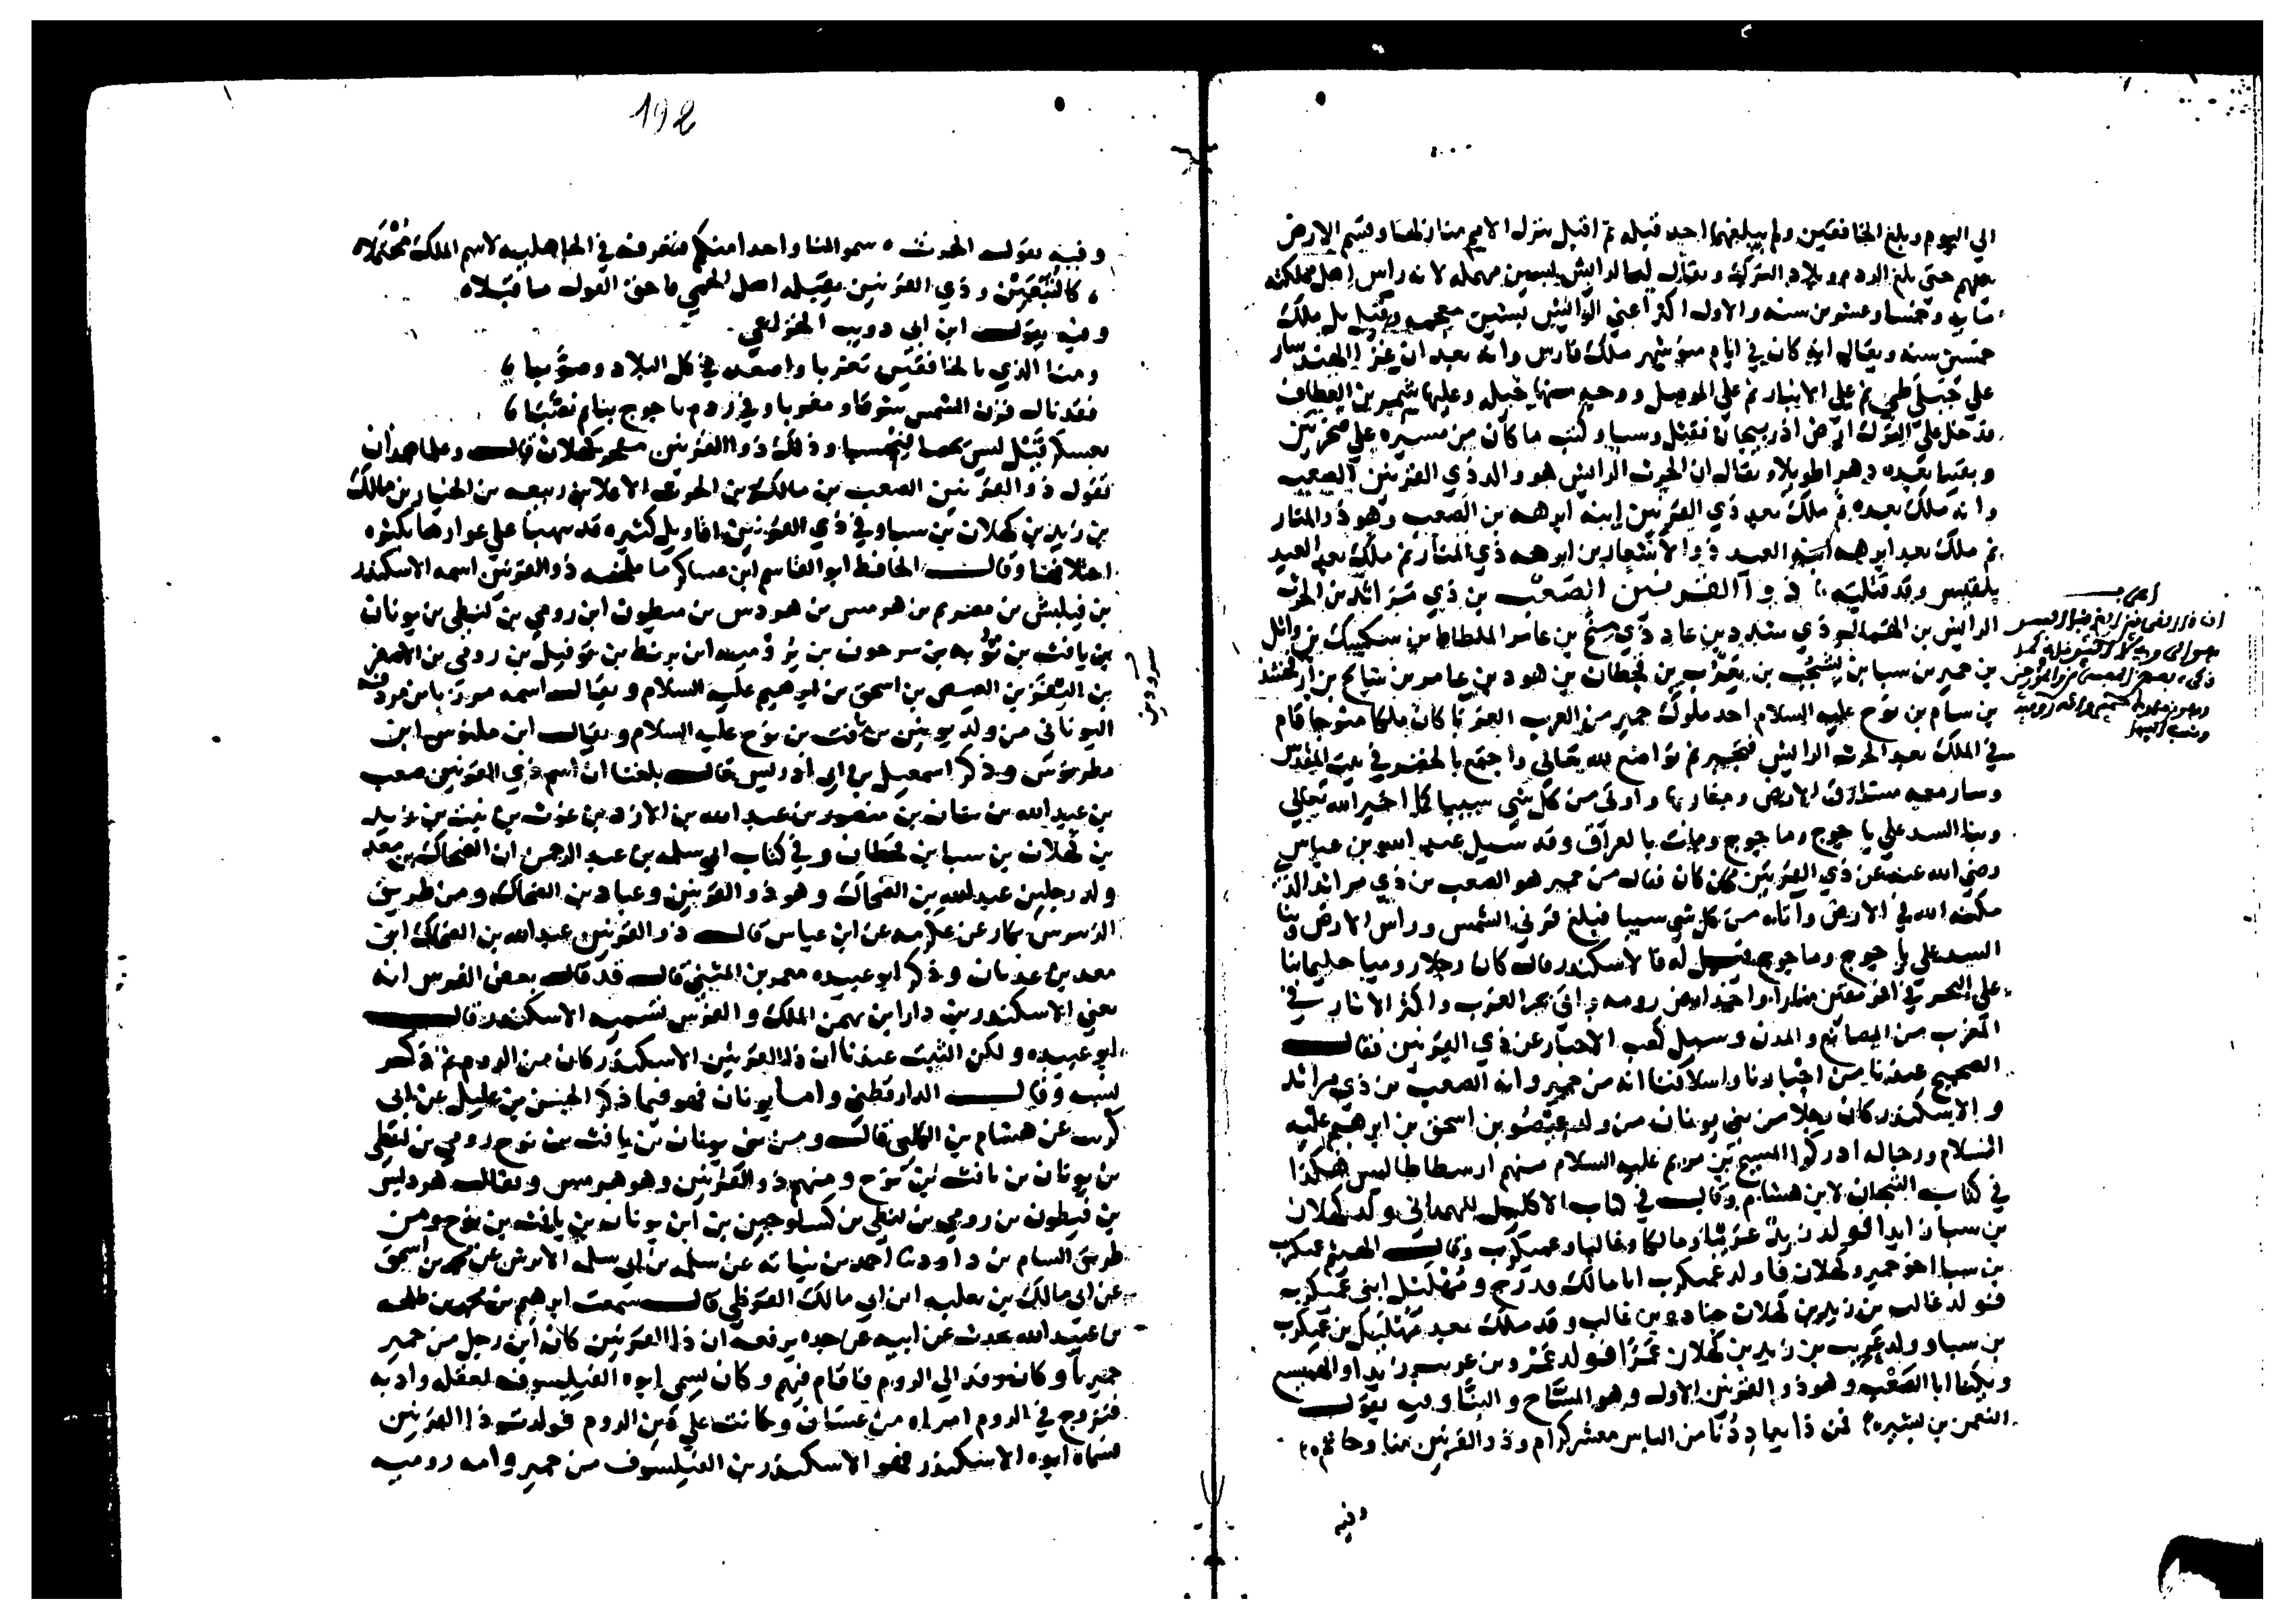 الي اليوم وبلغ الخافقين ولم يبلغهما احد قبله ثم اقبل ينزل الامم منازلها وقسم الارض
بينهم حتي بلغ الروم وبلاد الترك ويقال لها الرايس بسين مهمله لانه راس اهل مملكته
مايه وخمسا وعشرين سنه والاول اكثر اعني الرايش بشين معجمه وقيل بل ملك
خمسين سنه ويقال انه كان في ايام منوشهر ملك فارس وانه بعد ان غزا الهند سار
علي جبلي طي ثم علي الانبار ثم علي الموصل ووجه منها خيله وعليها شمر بن العطاف
فدخل علي الترك ارض اذربيجان فقتل وسبا وكتب ما كان من مسيره علي حجرين
وبقيا بعده دهرا طويلا ويقال ان الحرث الرايش هو والد ذي القرنين الصعب
وانه ملك بعده ثم ملك بعد ذي القرنين ابنه ابرهه بن الصعب وهو ذو المنار
ثم ملك بعد ابرهه ابنه العبد ذو الاذعار بن ابرهه ذي المنار ثم ملك بعد العبد
بلقيس وقد قتلته ذو القرنين الصعب بن ذي مراثد بن الحرث
الرايش بن الهمال ذي سدد بن عاد ذي منح بن عامر الملطاط بن سكسك بن وائل
بن حمير بن سبا بن يشجب بن يعرب بن قحطان بن هود بن عامر بن شالخ بن ارفخشد
بن سام بن نوح عليه السلام احد ملوك حمير من العرب العربا كان ملكا متوجا قام
في الملك بعد الحرث الرايش فتجبر ثم تواضع لله تعالي واجتمع بالخضر في بيت المقدس
وسار معه مشارق الارض ومغاربها واوتي من كل شي سببا كما اخبر الله تعالي
وبنا السد علي ياجوج وماجوج ومات بالعراق وقد سيل عبد الله بن عباس
رضي الله عنه عن ذي القرنين ممن كان فقال من حمير هو الصعب بن ذي مراثد الذي
مكنه الله في الارض وآتاه من كل شي سببا فبلغ قرني الشمس وراس الارض وبنا
السد علي ياجوج وماجوج قيل له فالاسكندر قال كان رجلا روميا حكيما بنا
علي البحر في افريقيس منارا واخذ ارض رومه واتي بحر العرب واكثر الاثار في
المغرب من المصانع والمدن وسيل كعب الاحبار عن ذي القرنين فقال
الصحيح عندنا من اخبارنا واسلافنا انه من حمير وانه الصعب بن ذي مراثد
والاسكندر كان رجلا من بني يونان من ولد عيصو بن اسحق بن ابرهيم عليه
السلام ورجاله ادركوا المسيح بن مريم عليه السلام منهم ارسطاطاليس هكذا
في كتاب التيجان لابن هشام وقال في كتاب الاكليل للهمداني ولد كهلان
بن سبا زيدا فولد زيد عريبا ومالكا وغالبا وعميكرب وقال الهيثم عميكرب
بن سبا اخو حمير وكهلان فاولد عميكرب ابا مالك فدرج ومهليل ابني عميكرب
فولد غالب بن زيد بن كهلان جناده بن غالب وقد ملك بعد مهليل بن عميكرب
بن سبا وولد عريب بن زيد بن كهلان عمرا فولد عمرو بن عريب زيدا والهميسع
ويكنا ابا الصعب وهو ذو القرنين الاول وهو المساح والبنا وفيه يقول
النعمن بن بشير فمن ذا يعاددنا من الناس معشر كرام وذو القرنين منا وحاتم
وفيه
192
وفيه يقول الحرث سموا لنا واحدا منكم فنعرفه في الجاهليه لاسم الملك محتملا
كالتبعين وذي القرنين يقبله اهل الحجي فاحق القول ما قبلا
وفيه يقول ابن ابي ذويب الخزاعي
ومنا الذي بالخافقين تغربا واصعد في كل البلاد وصوبا
فقد نال قرن الشمس شرقا ومغربا وفي ردم ياجوج بنا ثم نصبا
وذلك ذو القرنين كهلان قال وعلما همدان
تقول ذو القرنين الصعب بن مالك بن الحرث الاعلا بن ربيعه بن الخيار بن مالك
بن زيد بن كهلان بن سبا وفي ذي القرنين اقاويل كثيره قد نبهنا علي عوارها بكثره
اختلافها وقال الحافظ ابو القاسم ابن عساكر ما ملخصه ذو القرنين اسمه الاسكندر
بن فيلبش بن مصريم بن هرمس بن هردس بن ميطون ابن رومي بن لنطي بن يونان
بن يافث بن نوبه بن سرحون بن بن رومي بن الاصفر
بن اليفز بن العيص بن اسحق بن ابرهيم عليه السلام ويقال اسمه مرزبا بن مردفه
اليوناني من ولد يونن بن يافث بن نوح عليه السلام ويقال ابن ملنوس ابن
مطريوس وذكر اسمعيل بن ابي ادريس قال بلغنا ان اسم ذي القرنين صعب
بن عبد الله بن قنان بن منصور بن عبد الله بن الازد بن غوث بن نبت بن زيد
بن كهلان بن سبا بن قحطان وفي كتاب ابي سلمه بن عبد الرحمن ان الضحاك بن معد
ولد رجلين عبد الله بن الضحاك وهو ذو القرنين وعباد بن الضحاك ومن طريق
بكار عن عكرمه عن ابن عباس قال ذو القرنين عبد الله بن الضحاك ابن
معد بن عدنان وذكر ابو عبيده معمر بن المثني قال قد قال بعض الفرس انه
يعني الاسكندر بن دارا بن بهمن الملك والفرس تسميه الاسكندر قال
ابو عبيده ولكن الثبت عندنا ان ذا القرنين الاسكندر كان من الروم ثم ذكر
نسبه وقال الدارقطني واما يونان فهو فيما ذكر الحسن بن عليل عن ابي
كريب عن هشام بن الكلبي قال ومن بني يونان بن يافث بن نوح رومي بن لنطي
بن يونان بن يافث بن نوح ومنهم ذو القرنين وهو هرمس ويقال هرديس
بن فيطون بن رومي بن لنطي بن كسلوجين بن ابن يونان بن يافث بن نوح ومن
طريق السام بن داود نا احمد بن نباته عن سلمه بن ابي سلمه الابرش عن محمد بن اسحق
عن ابي مالك بن ثعلبه ابن ابي مالك القرظي قال سمعت ابرهيم بن محمد بن طلحه
بن عبيد الله يحدث عن ابيه عن جده يرفعه ان ذا القرنين كان ابن رجل من حمير
حميريا وكان وفد الي الروم فاقام فيهم وكان يسمي ابوه الفيلسوف لعقله وادبه
فتزوج في الروم امراه من غسان وكانت علي دين الروم فولدت ذا القرنين
فسماه ابوه الاسكندر فهو الاسكندر بن الفيلسوف من حمير وامه روميه